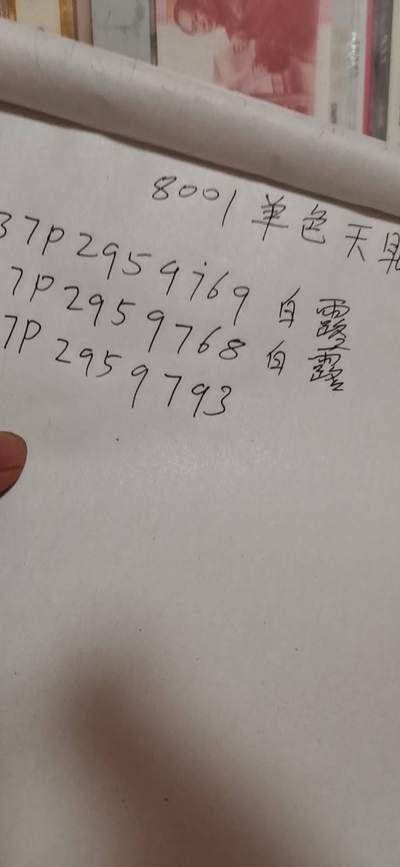 8001单色天
37P2959769 白露
7P2959768 白露
7P2959793